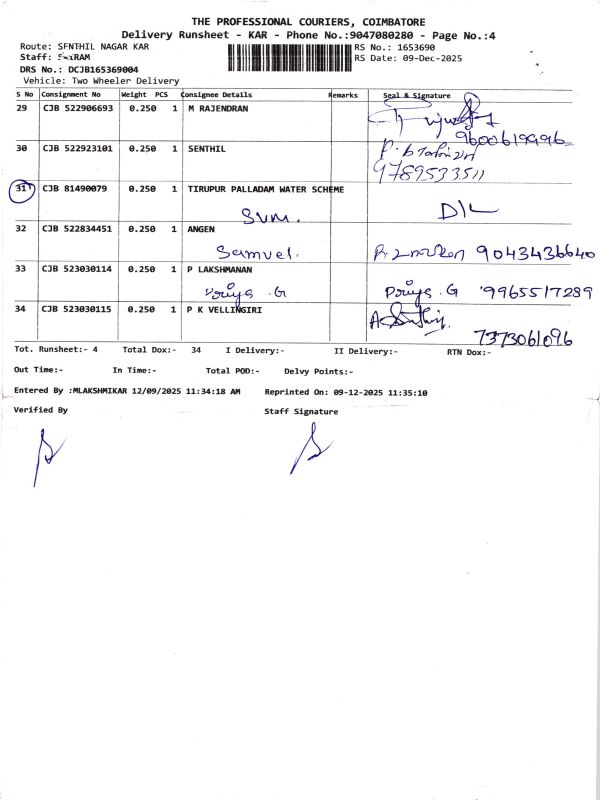 THE PROFESSIONAL COURIERS, COIMBATORE
Delivery Runsheet - KAR - Phone No.:9047080280 - Page No.:4
Route: SENTHIL NAGAR KAR
RS No.: 1653690
Staff: RAM
RS Date: 09-Dec-2025
DRS No.: DCJB165369004
Vehicle: Two Wheeler Delivery
S No Consignment No Weight PCS Consignee Details Remarks Seal & Signature
29 CJB 522906693 0.250 1 M RAJENDRAN
9600619996
30 CJB 522923101 0.250 1 SENTHIL
9789533511
31 CJB 81490079 0.250 1 TIRUPUR PALLADAM WATER SCHEME
32 CJB 522834451 0.250 1 ANGEN
Samuel. 9043436640
33 CJB 523030114 0.250 1 P LAKSHMANAN
Priya .G Priya . G 9965517289
34 CJB 523030115 0.250 1 P K VELLINGIRI
7373061096
Tot. Runsheet:- 4 Total Dox:- 34 I Delivery:- II Delivery:- RTN Dox:-
Out Time:- In Time:- Total POD:- Delvy Points:-
Entered By :MLAKSHMIKAR 12/09/2025 11:34:18 AM Reprinted On: 09-12-2025 11:35:10
Verified By Staff Signature